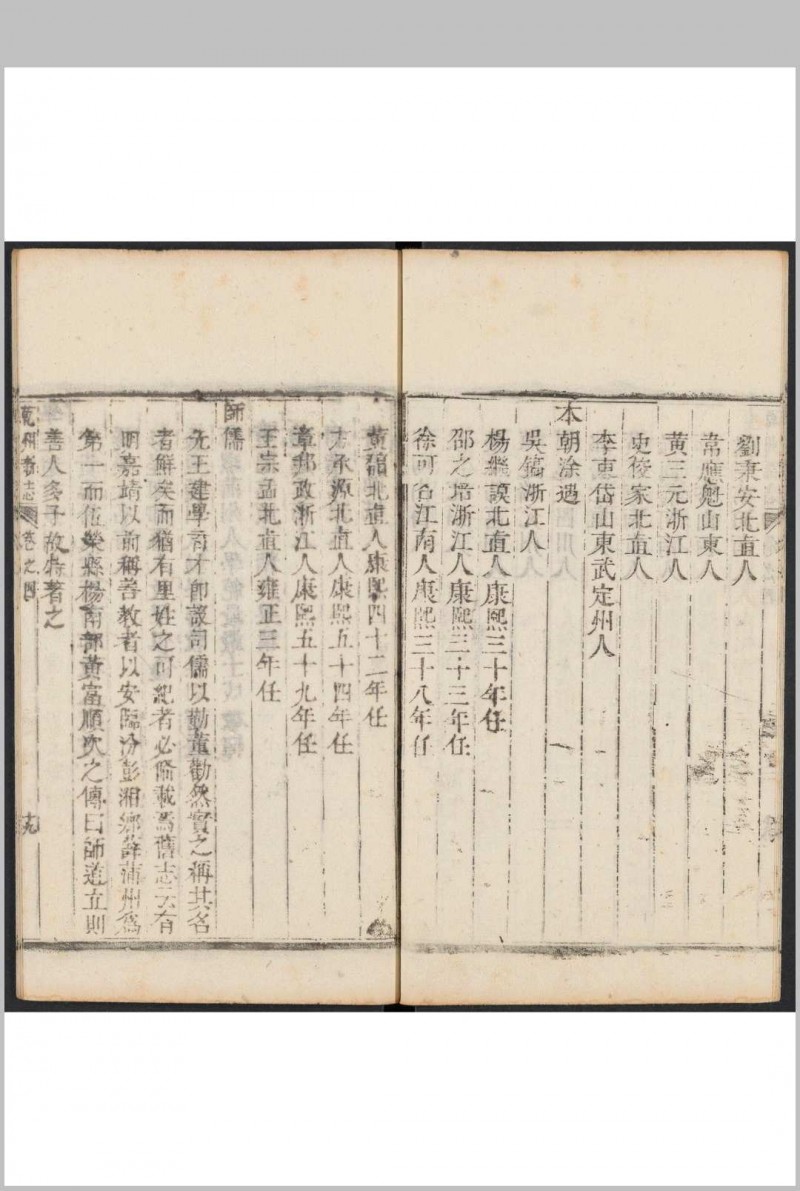 劉秉安北直人
常應魁山東人
黃三元浙江人
史從家北直人
李東岱山東武定州人
本朝涂遇
吳鎬浙江人
楊飛謨北直人康熙三十年任
邵之培浙江人康熙三十三年任
徐可名江南人康熙三十八年任
黃 北直人康熙四十二年任
方承源北直人康熙五十四年任
章邦政浙江人康熙五十九年任
王宗孟北直人雍正三年任
師儒
先王建學育才即設司儒以勤董勸然實之稱其名
者鮮矣而猶有里姓之可紀者必備載焉舊志云有
明嘉靖以前稱善教者以安臨汾彭湘鄉薛蒲州爲
第一而伍榮縣楊南部黃富順次之傳曰師道立則
善人多予故特著之
乾州 志
卷之四
十九